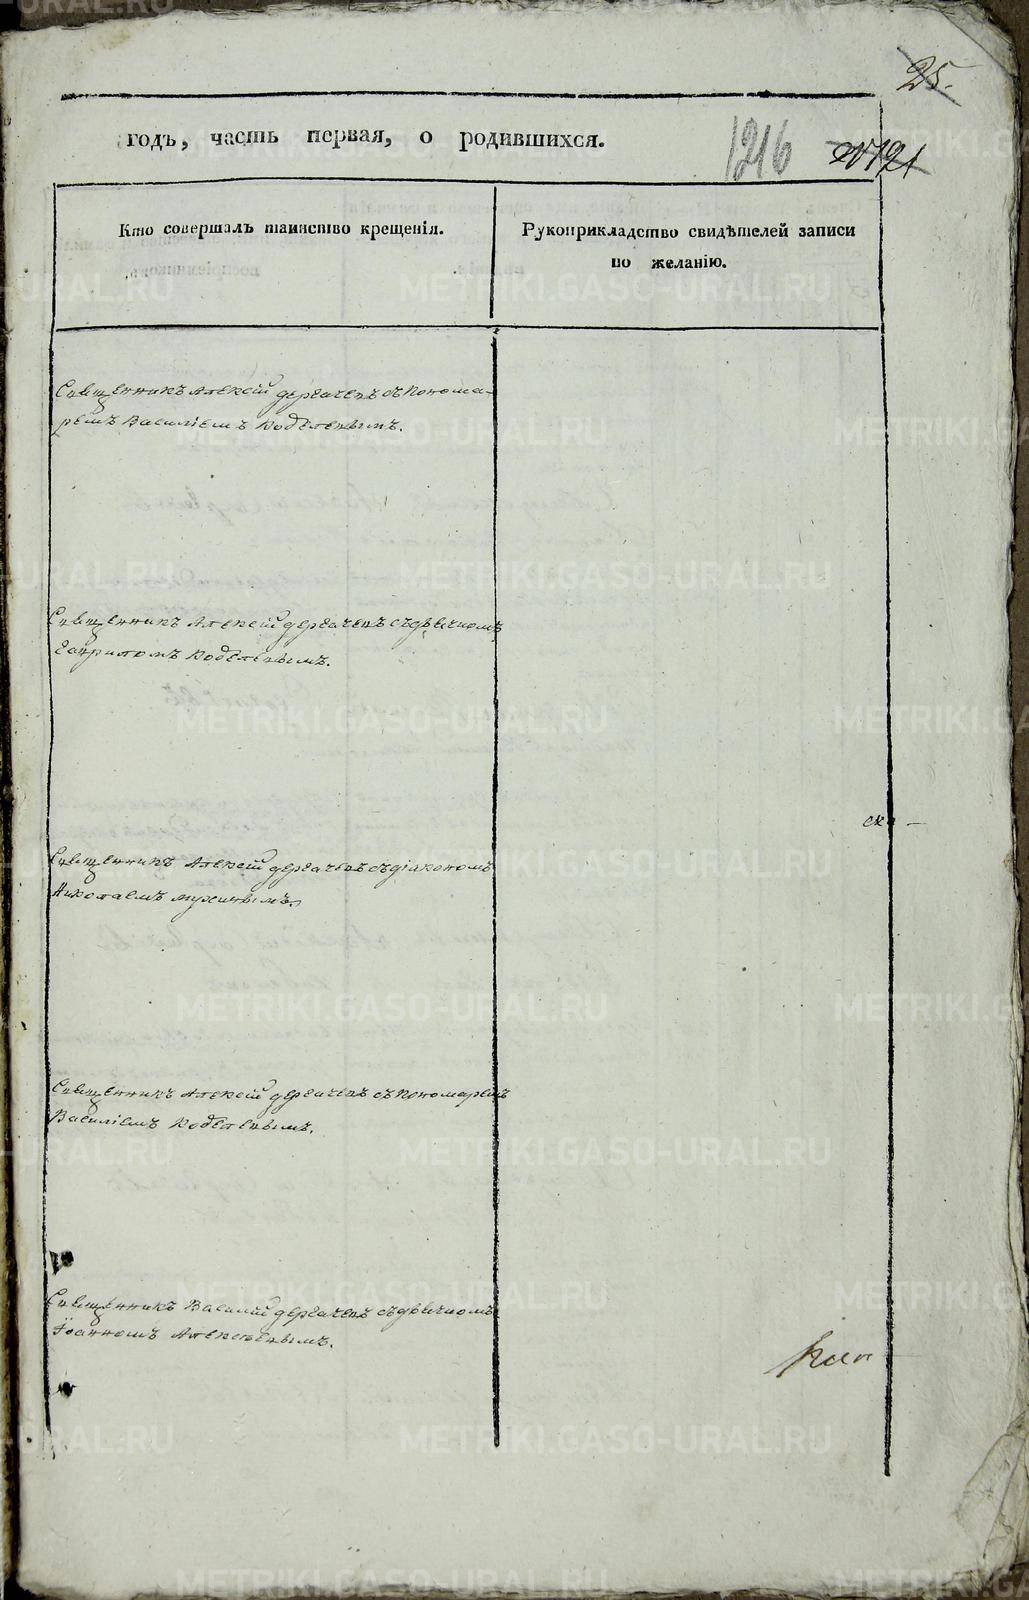 25.
годъ, часть первая, о родившихся.
1216
№ 121
Кто совершалъ таинство крещенія.
Рукоприкладство свидѣтелей записи
по желанію.
Священникъ Алексій Дергачевъ съ Понома-
ремъ Василіемъ Кодѣлевымъ.
Священникъ Алексій Дергачевъ съ дьячкомъ
Гавриломъ Кодѣлевымъ.
Священникъ Алексій Дергачевъ съ діакономъ
Николаемъ Мухинымъ.
Священникъ Алексій Дергачевъ съ Пономаремъ
Василіемъ Кодѣлевымъ.
Священникъ Василій Дергачевъ съ дьячкомъ
Іоанномъ Алексѣевымъ.
METRIKI.GASO-URAL.RU